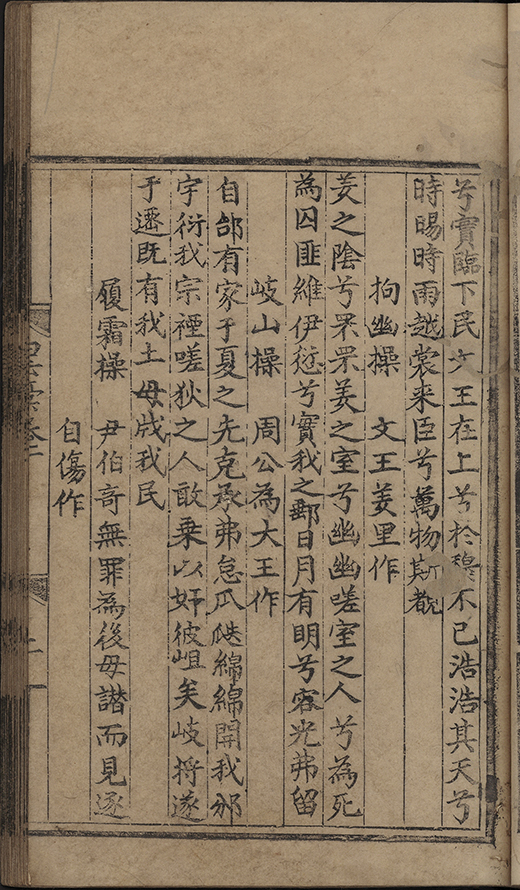 兮實臨下民文王在上兮於穆不已浩浩其天兮
時暘時雨越裳来臣兮萬物斯覩
拘幽操 文王羑里作
羑之陰兮罘罘羑之室兮幽幽嗟室之人兮為死
為囚匪維伊愆兮實我之郵日月有明兮容光弗留
岐山操 周公為大王作
自邰有家于夏之先克承弗怠瓜瓞綿綿開我邠
宇衍我宗禋嗟狄之人敢乗以奸彼岨矣岐将遂
于遷既有我土毋戕我民
履霜操 尹伯奇無罪為後母譖而見逐
自傷作